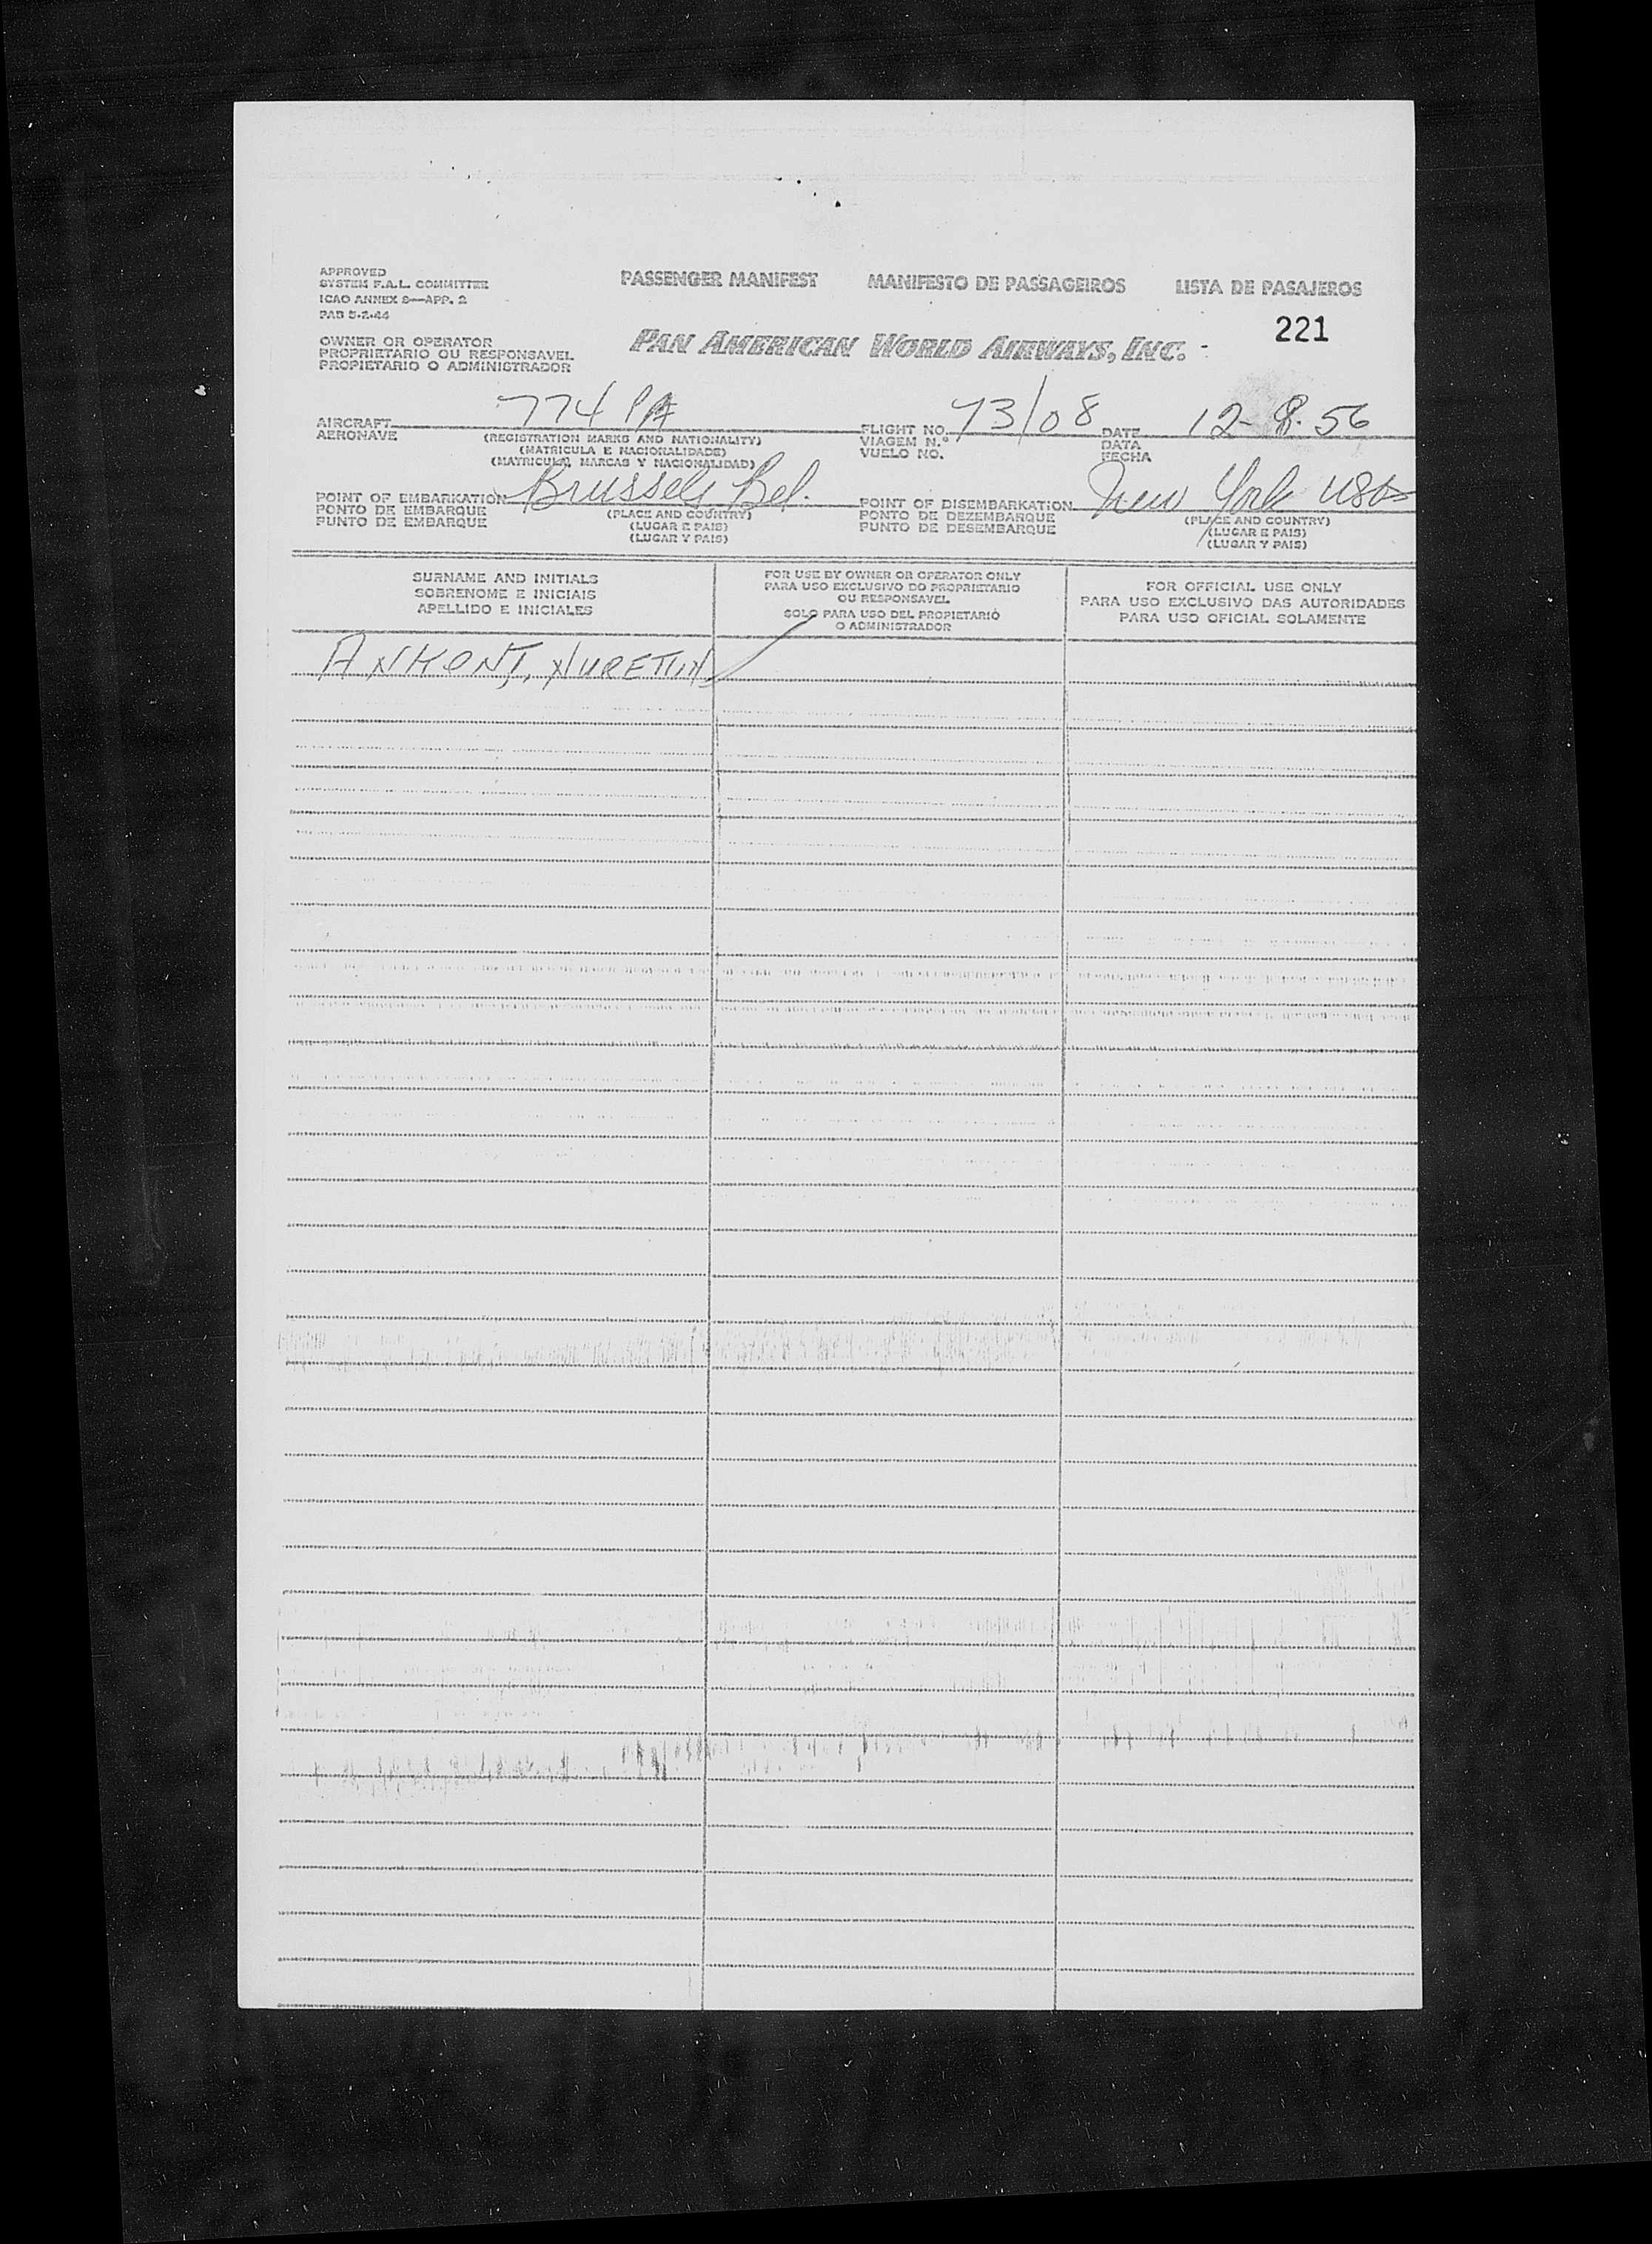 APPROVED
SYSTEM F.A.L. COMMITTEE
ICAO ANNEX 9—APP. 2
PAB 5-2-44
PASSENGER MANIFEST MANIFESTO DE PASSAGEIROS LISTA DE PASAJEROS
221
OWNER OR OPERATOR
PROPRIETARIO OU RESPONSAVEL
PROPIETARIO O ADMINISTRADOR
PAN AMERICAN WORLD AIRWAYS, INC.
AIRCRAFT 774 PA
AERONAVE
(REGISTRATION MARKS AND NATIONALITY)
(MATRICULA E NACIONALIDADE)
(MATRICULA, MARCAS Y NACIONALIDAD)
FLIGHT NO. 73/08
VIAGEM N.º
VUELO NO.
DATE 12-8-56
DATA
FECHA
POINT OF EMBARKATION Brussels Bel.
PONTO DE EMBARQUE
PUNTO DE EMBARQUE
(PLACE AND COUNTRY)
(LUGAR E PAIS)
(LUGAR Y PAIS)
POINT OF DISEMBARKATION New York USA
PONTO DE DEZEMBARQUE
PUNTO DE DESEMBARQUE
(PLACE AND COUNTRY)
(LUGAR E PAIS)
(LUGAR Y PAIS)
SURNAME AND INITIALS
SOBRENOME E INICIAIS
APELLIDO E INICIALES
FOR USE BY OWNER OR OPERATOR ONLY
PARA USO EXCLUSIVO DO PROPRIETARIO
OU RESPONSAVEL
SOLO PARA USO DEL PROPIETARIO
O ADMINISTRADOR
FOR OFFICIAL USE ONLY
PARA USO EXCLUSIVO DAS AUTORIDADES
PARA USO OFICIAL SOLAMENTE
NURETTIN